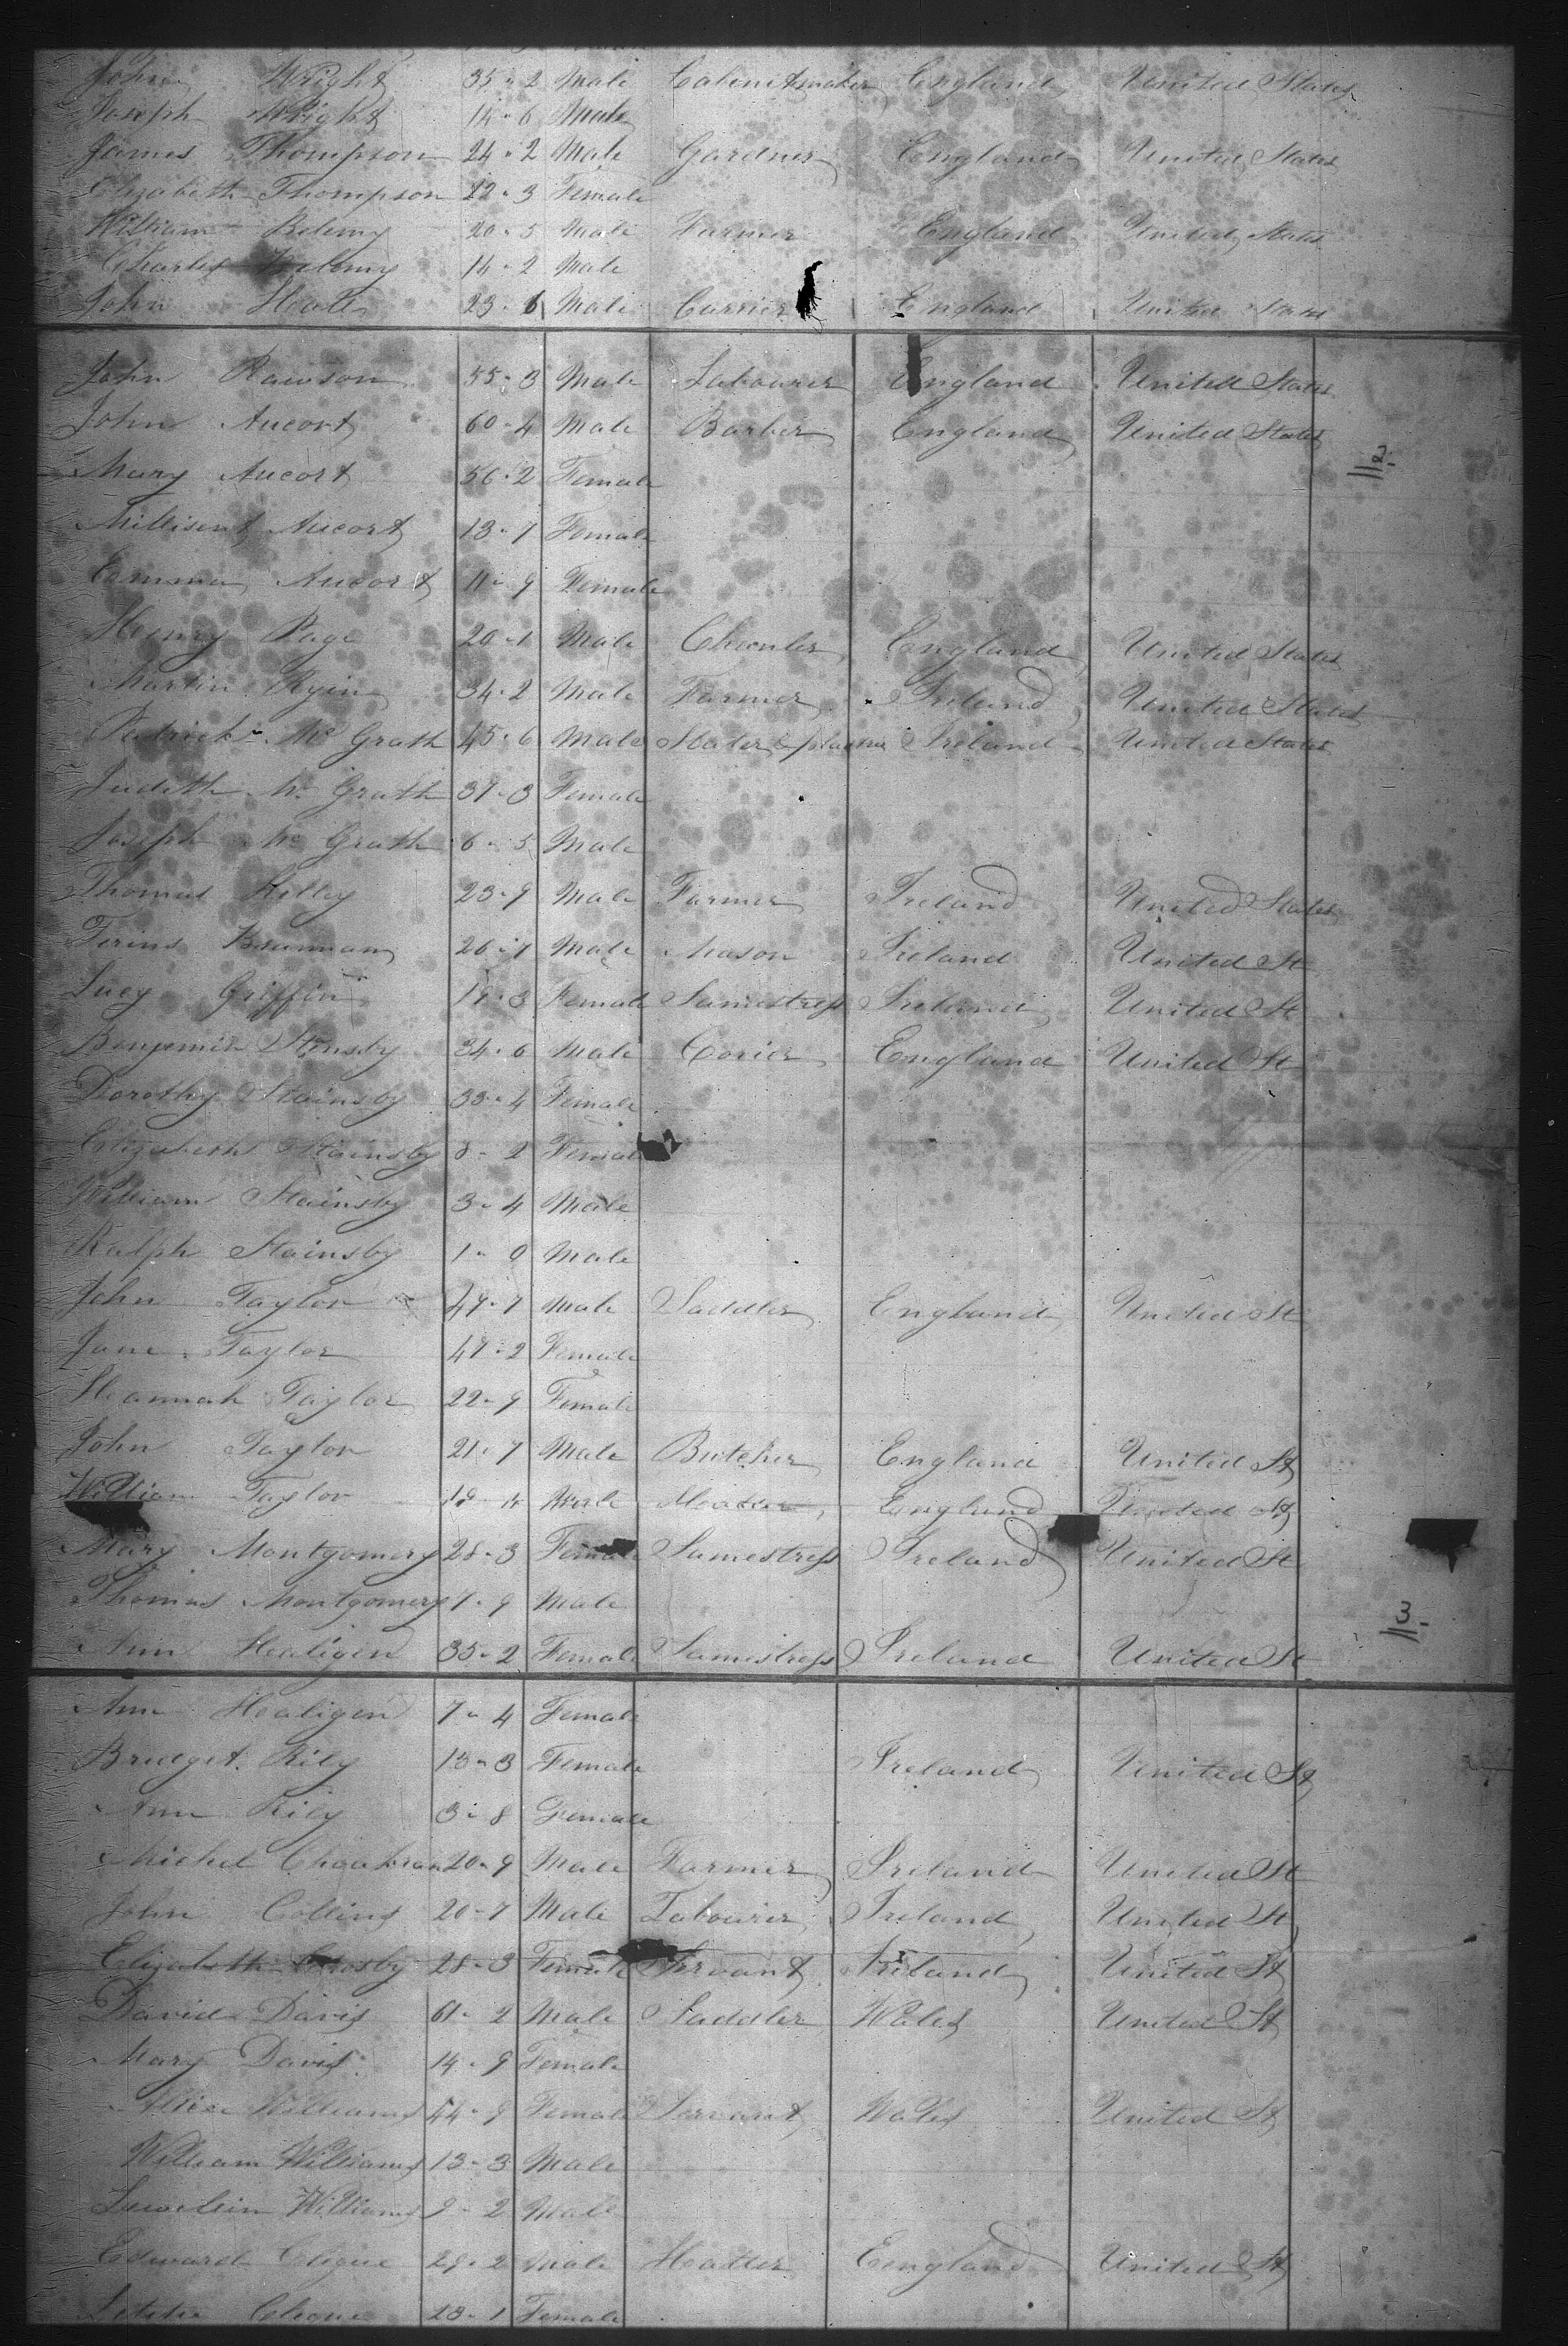 John Wright 35-2 Male Cabinetmaker England United States
Joseph Wright 14-6 Male
James Thompson 24-2 Male Gardner England United States
Elizabeth Thompson 22-3 Female
William 20-5 Male Farmer England United States
Charles 14-2 Male
John 23-6 Male Currier England United States
John Rawson 55-3 Male Labourer England United States
John Aucort 60-4 Male Barber England United States
2
Mary Aucort 56-2 Female
Millisent Aucort 13-7 Female
Emma Aucort 11-9 Female
Henry Page 20-1 Male England United States
Martin Ryin 34-2 Male Farmer Ireland United States
Patrick Mc Grath 45-6 Male Slater & Ireland United States
Judith Mc Grath 37-3 Female
Joseph Mc Grath 6-5 Male
Thomas Kelley 23-9 Male Farmer Ireland United States
Brannan 26-7 Male Mason Ireland United St
Lucy Griffin Female Samestress Ireland United St
Benjemin Stensby 34-6 Male Corier England United St
Dorothy Stainsby 33-4 Female
Elizabeth Stainsby 2 Female
William Stainsby 3-4 Male
Ralph Stainsby 1-0 Male
John Taylor 49-7 Male Saddler England United St
Jane Taylor 47-2 Female
Hannah Taylor 22-9 Female
John Taylor 21-7 Male Butcher England United St
William Taylor Male Hatter England United St
Mary Montgomery 28-3 Female Samestress Ireland United St
Thomas Montgomery 7-9 Male
3
Ann Healigen 35-2 Female Samestress Ireland United St
Ann Healigen 7-4 Female
Bridget Rily 13-3 Female Ireland United St
Ann Rily 3-8 Female
Michel 20-9 Male Farmer Ireland United St
John Collins 20-7 Male Labourer Ireland United St
Elizabeth Crosby 28-3 Female Servant Ireland United St
David Davis 61-2 Male Saddler Wales United St
Mary Davis 14-9 Female
Alice Williams 44-9 Female Servant Wales United St
William Williams 13-3 Male
Lewelein Williams 9-2 Male
Edward 29-2 Male Hatter Eengland United St
23-1 Female